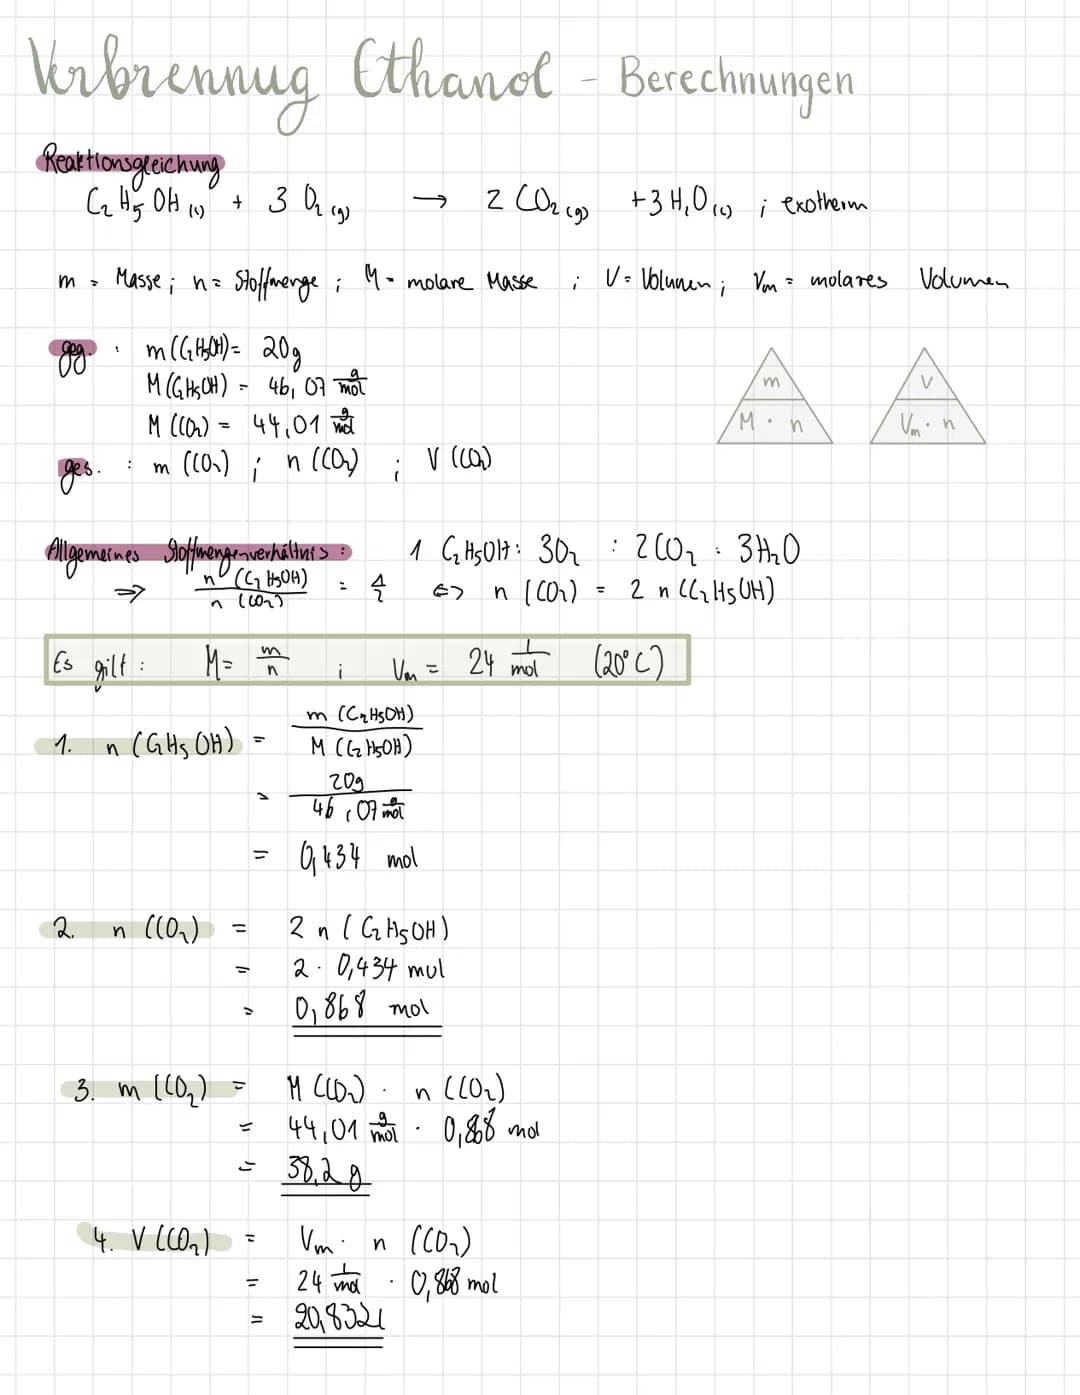 Verbrennug Ethanol - Berechnungen
Reaktionsgleichung
C₂H₅OH (l) + 3 O₂ (g) → 2 CO₂ (g) + 3 H₂O (l) ; exotherm
m = Masse ; n = Stoffmenge ; M = molare Masse ; V = Volumen ; Vm = molares Volumen
geg. : m (C₂H₅OH) = 20g
M (C₂H₅OH) = 46,07 g/mol
M (CO₂) = 44,01 g/mol
ges. : m (CO₂) ; n (CO₂) ; V (CO₂)
m
M · n
V
Vm · n
Allgemeines Stoffmengenverhältnis : 1 C₂H₅OH : 3O₂ : 2CO₂ : 3H₂O
⇒ n (C₂H₅OH) / n (CO₂) = 1/2 ⇔ n (CO₂) = 2 n (C₂H₅OH)
Es gilt : M = m/n ; Vm = 24 l/mol (20°C)
1. n (C₂H₅OH) = m (C₂H₅OH) / M (C₂H₅OH)
= 20g / 46,07 g/mol
= 0,434 mol
2. n (CO₂) = 2 n (C₂H₅OH)
= 2 · 0,434 mol
= 0,868 mol
3. m (CO₂) = M (CO₂) · n (CO₂)
= 44,01 g/mol · 0,868 mol
= 38,2 g
4. V (CO₂) = Vm · n (CO₂)
= 24 l/mol · 0,868 mol
= 20,832 l